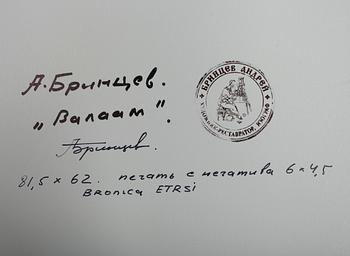 А. Бринцев.
„Валаам".
БРИНЦЕВ АНДРЕЙ
ХУДОЖНИК-РЕСТАВРАТОР,
АБринцев
81,5 × 62. печать с негатива 6 × 4,5
Bronica ETRSi